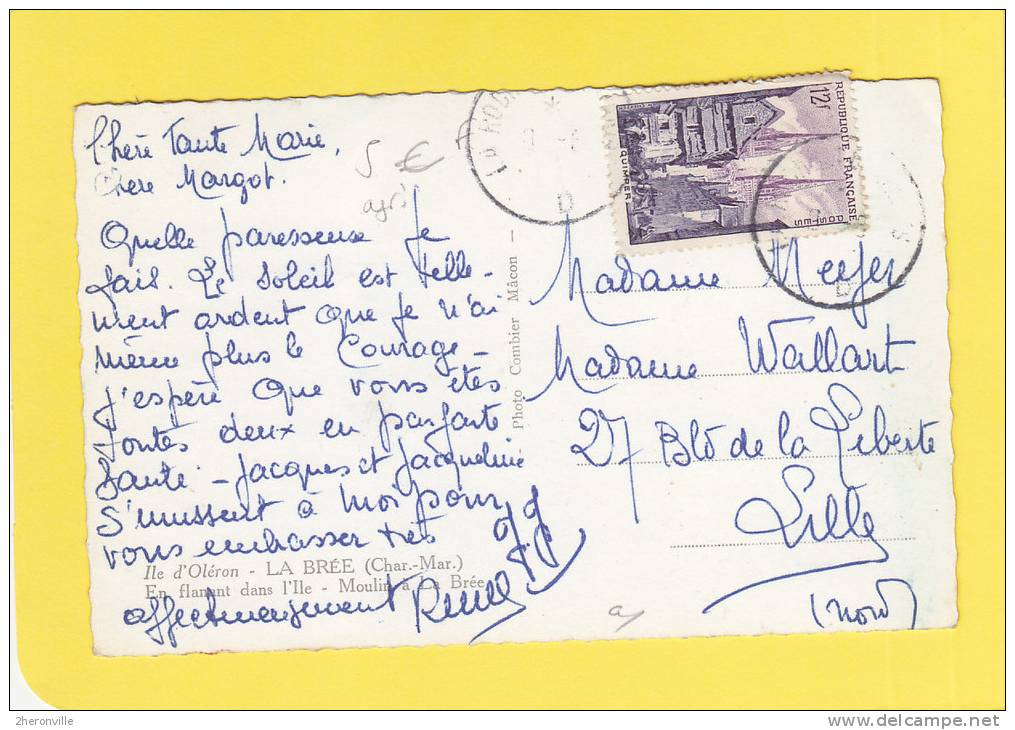 Chère Tante Marie,
Chère Margot.
Quelle paresseuse je
fais. Le soleil est telle-
ment ardent que je n'ai
même plus le Courage -
J'espère que vous êtes
toutes deux en parfaite
Santé - Jacques et Jacqueline
S'unissent à moi pour
vous embrasser très
affectueusement
Ile d'Oléron - LA BRÉE (Char.-Mar.)
En flanant dans l'Ile - Moulin à La Brée
Photo Combier Mâcon -
5 €
12F
REPUBLIQUE FRANÇAISE
POSTES
QUIMPER
D
D
Madame Meyer
Madame Wallart
27 Bld de la Liberte
Lille
(Nord)
2heronville
www.delcampe.net